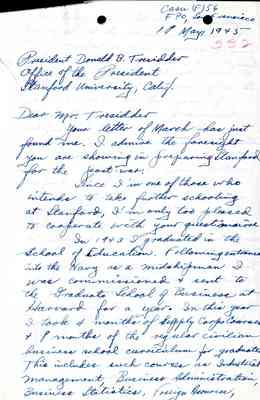 Casu (F) 56
FPO, San Francisco
18 May, 1945
President Donald B. Tresidder
Office of the President
Stanford University, Calif.
Dear Mr. Tresidder
Your letter of March has just
found me. I admire the foresight
you are showing in preparing Stanford
for the post war.
Since I'm one of those who
intends to take further schooling
at Stanford, I'm only too pleased
to cooperate with your questionnaire
In 1943 I graduated in the
School of Education. Following entrance
into the Navy as a midshipman I
was commissioned & sent to
the Graduate School of Business at
Harvard for a year. In this year
I took 4 months of Supply Corps Courses
& 8 months of the regular civilian
business school curriculum for graduates
This includes such courses as Industrial
Management, Business Administration,
Business Statistics, Foreign Commerce,